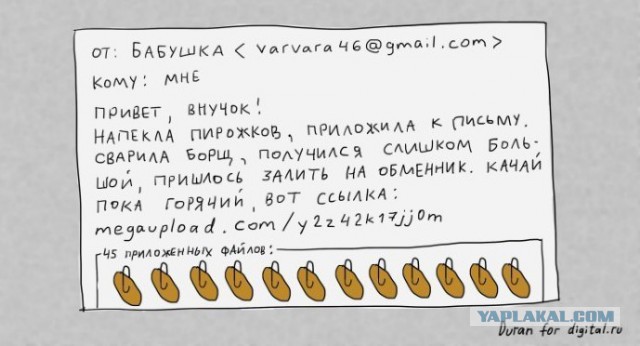 ОТ: БАБУШКА < varvara46@gmail.com>
КОМУ: МНЕ
ПРИВЕТ, ВНУЧОК!
НАПЕКЛА ПИРОЖКОВ, ПРИЛОЖИЛА К ПИСЬМУ.
СВАРИЛА БОРЩ, ПОЛУЧИЛСЯ СЛИШКОМ БОЛЬ-
ШОЙ, ПРИШЛОСЬ ЗАЛИТЬ НА ОБМЕННИК. КАЧАЙ
ПОКА ГОРЯЧИЙ, ВОТ ССЫЛКА:
megaupload.com/y2z42k17jj0m
45 ПРИЛОЖЕННЫХ ФАЙЛОВ:
YAPLAKAL.COM
Duran for digital.ru